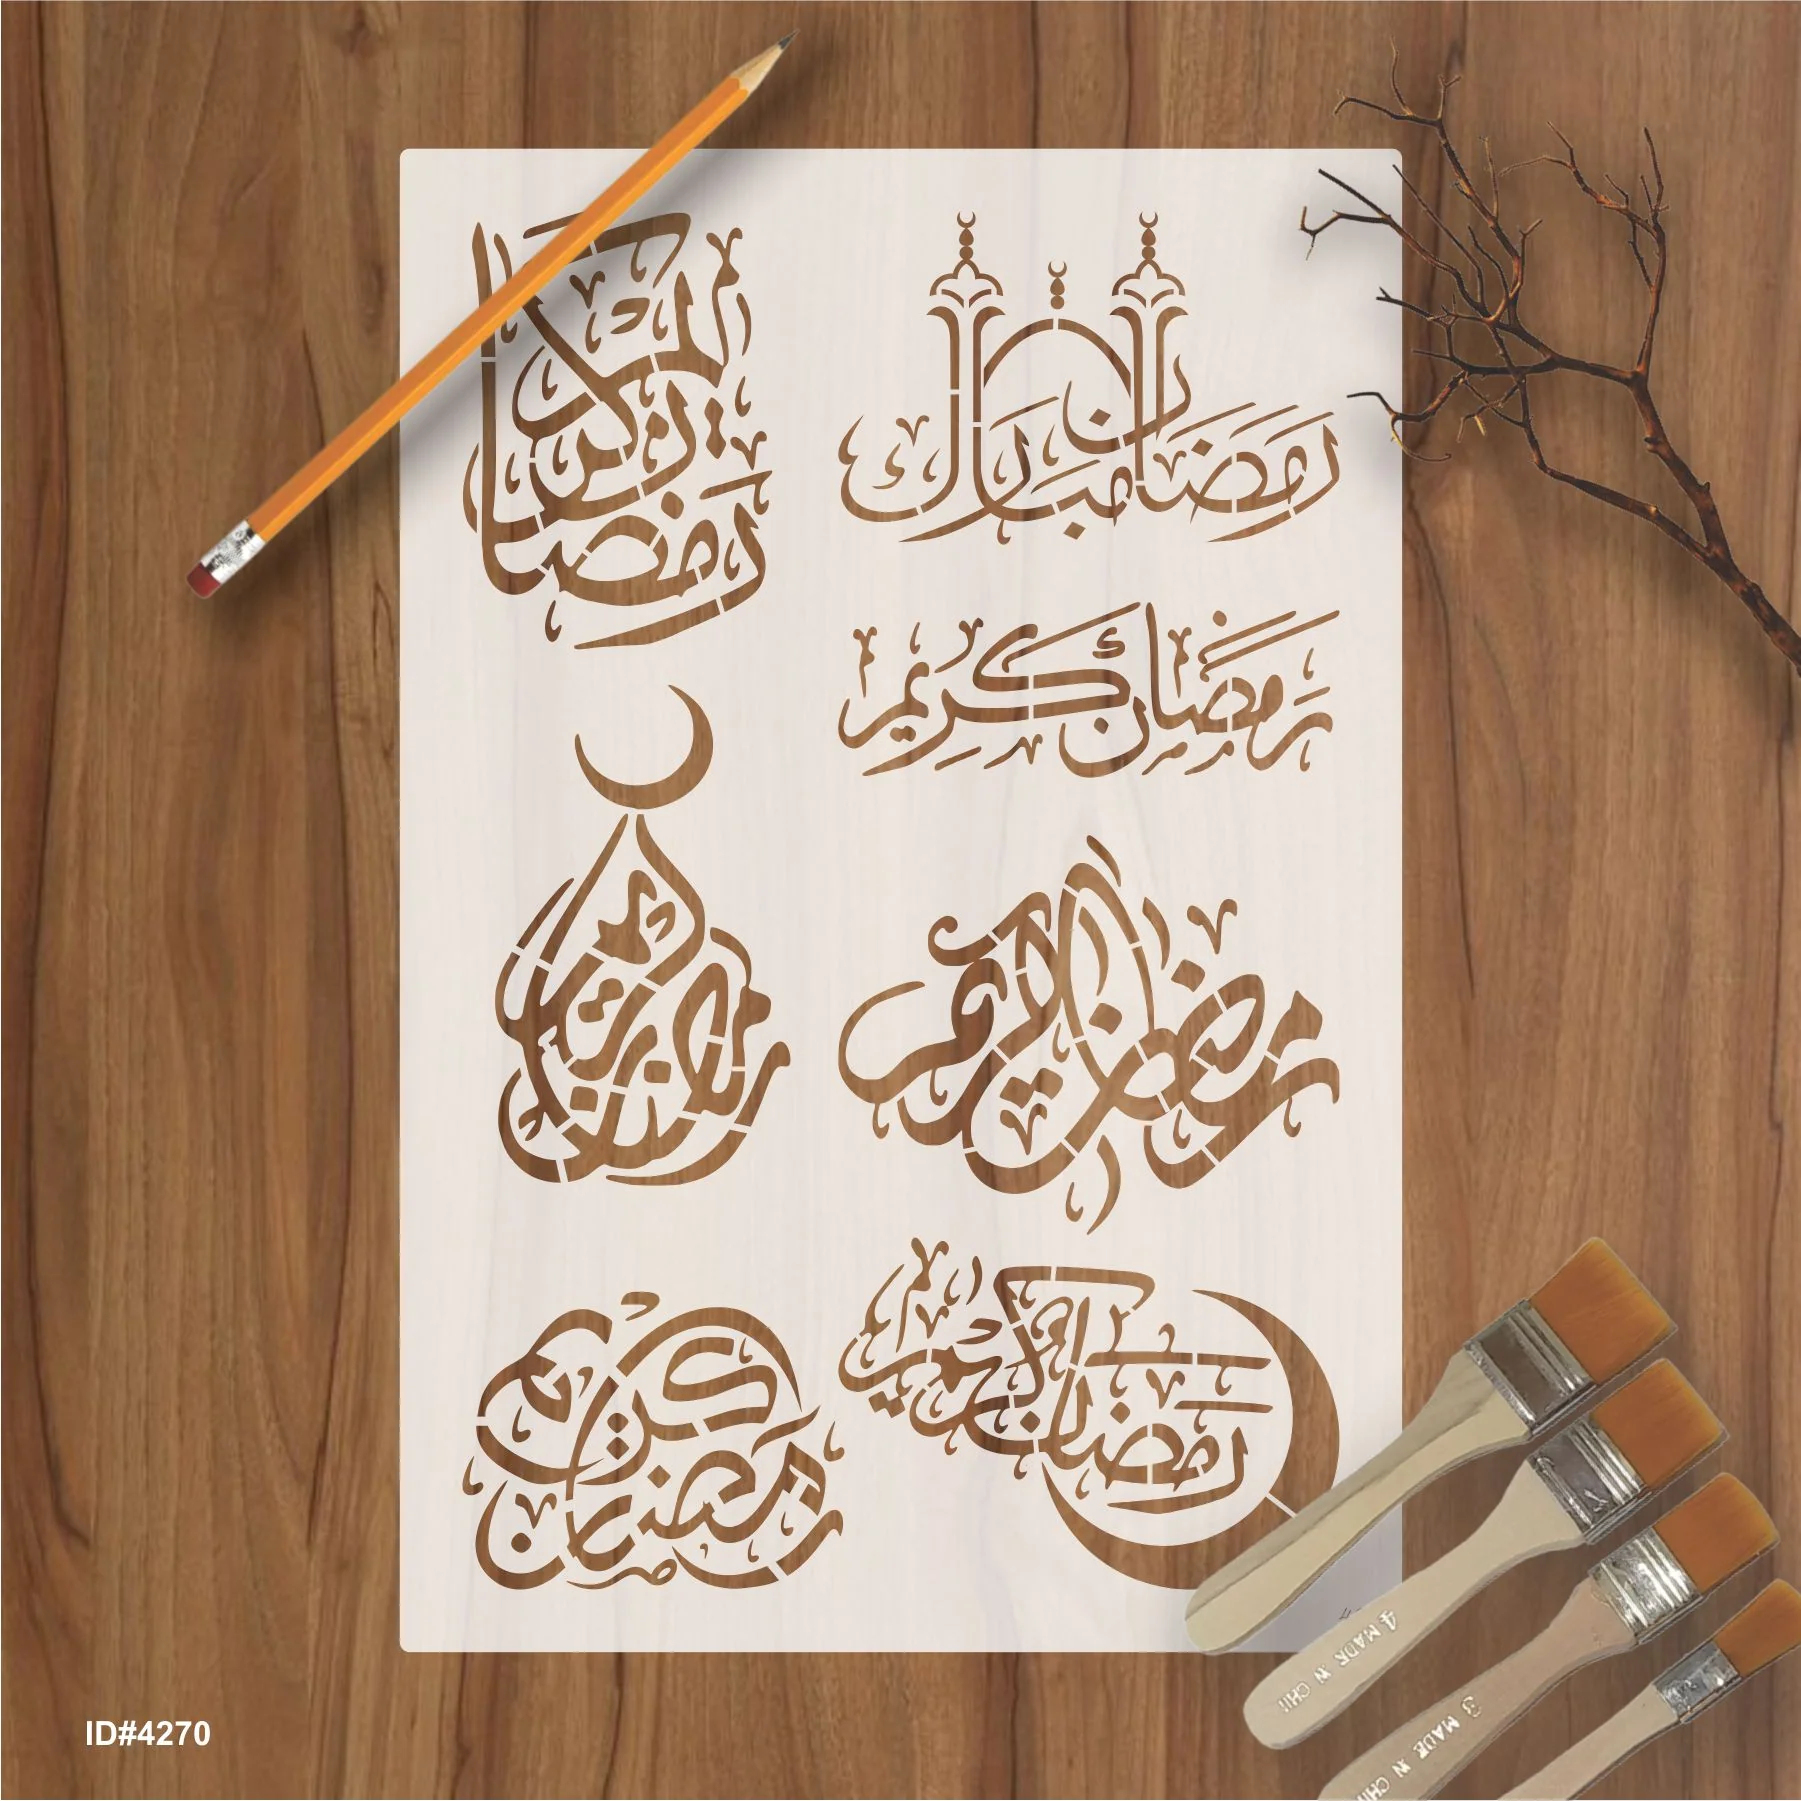 رمضان كريم
رمضان مبارك
رمضان كريم
رمضان كريم
رمضان كريم
رمضان كريم
رمضان كريم
4 MADE IN CHI
3 MADE IN CHI
ID#4270